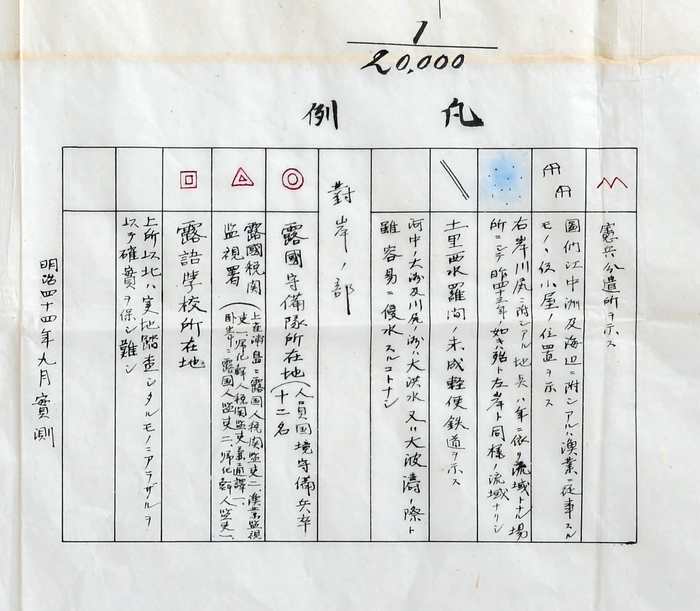 1
20,000
凡例
憲兵分遣所ヲ示ス
圖們江中洲及海辺ニ附シアルハ漁業ニ従事スル
モノヽ仮小屋ノ位置ヲ示ス
右岸川尻ニ附シアル地点ハ年ニ依リ流域トナル場
所ニシテ昨四十三年ノ如キ殆ト左岸ト同様ノ流域ナリシ
土里西水羅間ノ未成軽便鉄道ヲ示ス
河中ノ大洲及川尻ノ洲ハ大洪水又ハ大波濤ノ際ト
雖容易ニ侵水スルコトナシ
對岸ノ部
露國守備隊所在地(人員国境守備兵卒
十二名
露國税関
監視署
露語學校所在地
上所以北ハ実地踏査シタルモノニアラザルヲ
以テ確實ヲ保シ難シ
明治四十四年九月實測